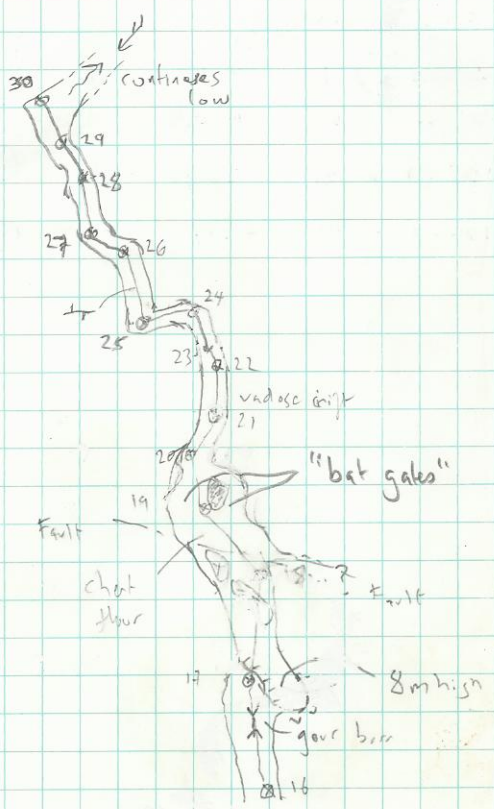 30
continues
low
29
28
27
26
25
24
23
22
vadose
21
20
"bat gates"
19
Fault
chert
floor
Fault
17
8m high
gour
16